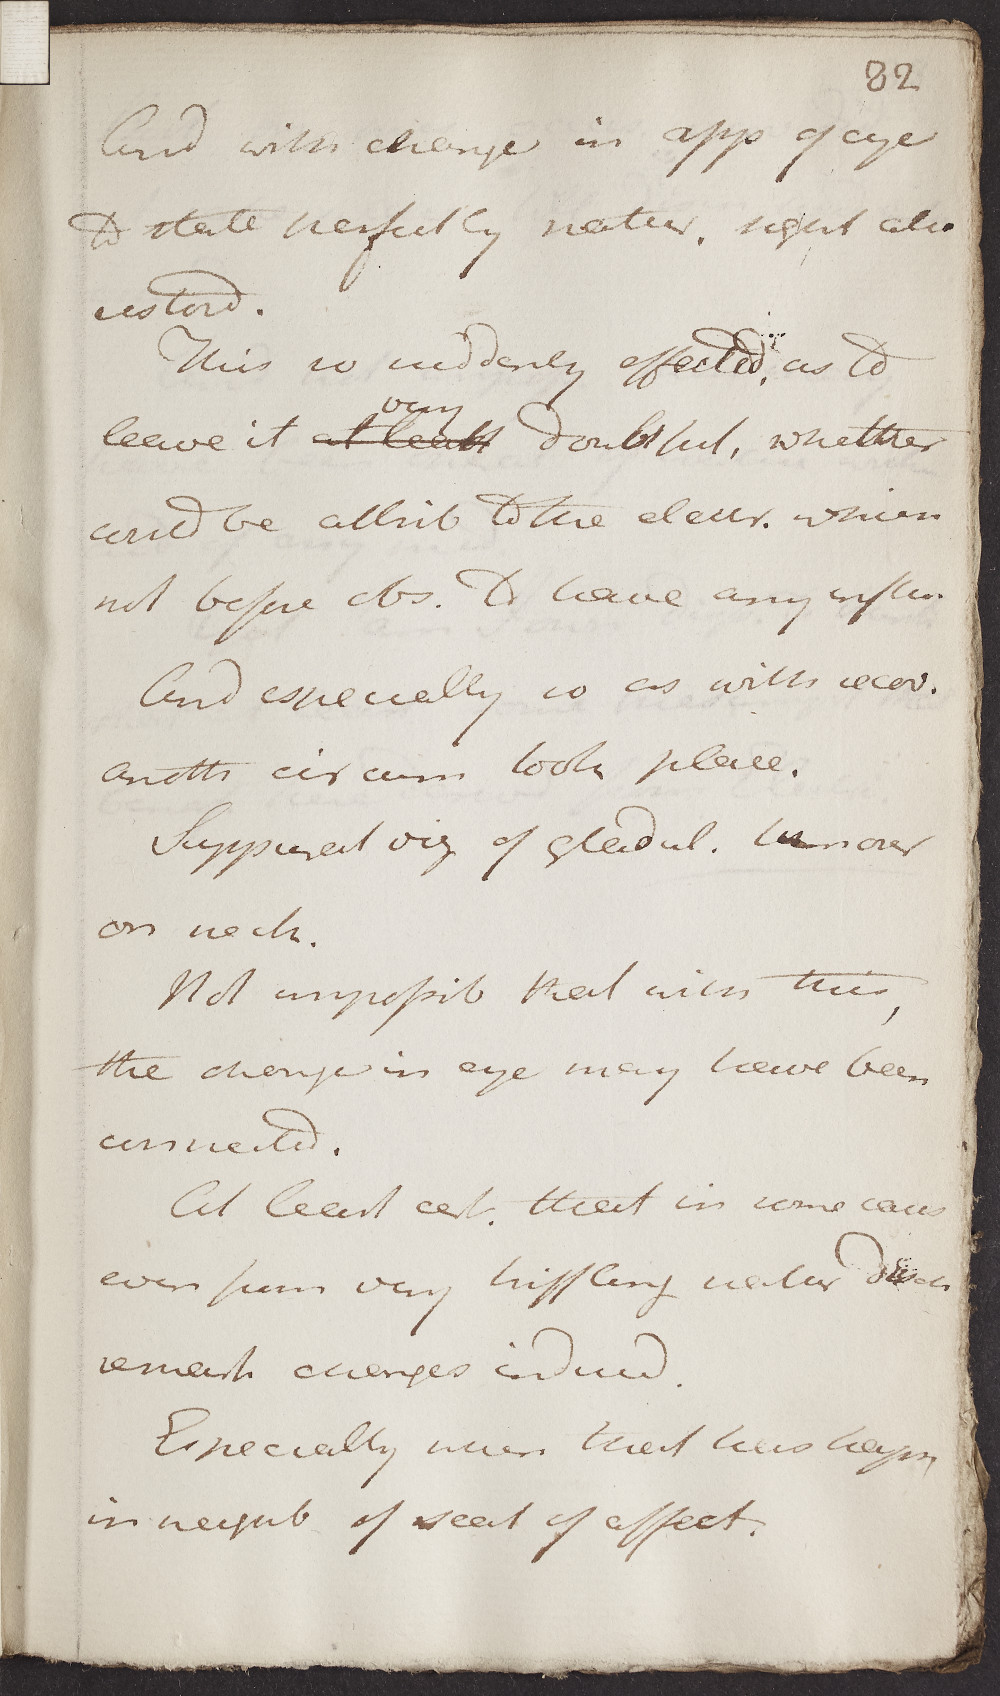 82
And with change in app of eye
to state perfectly natur. sight also
restord.
This so suddenly effected, as to
very
leave it at least doubtful, whether
could be attrib to the electr. which
not before obs. to have any influ.
And especially so as with recov.
anoth circum took place.
Suppurat viz of gladul. tumour
on neck.
Not impossib that with this,
the change in eye may have been
connected.
At least cert. that in some cases
even from very triffling natur disch
remark changes induced.
Especially when that has happn
in neighb of seat of affect.